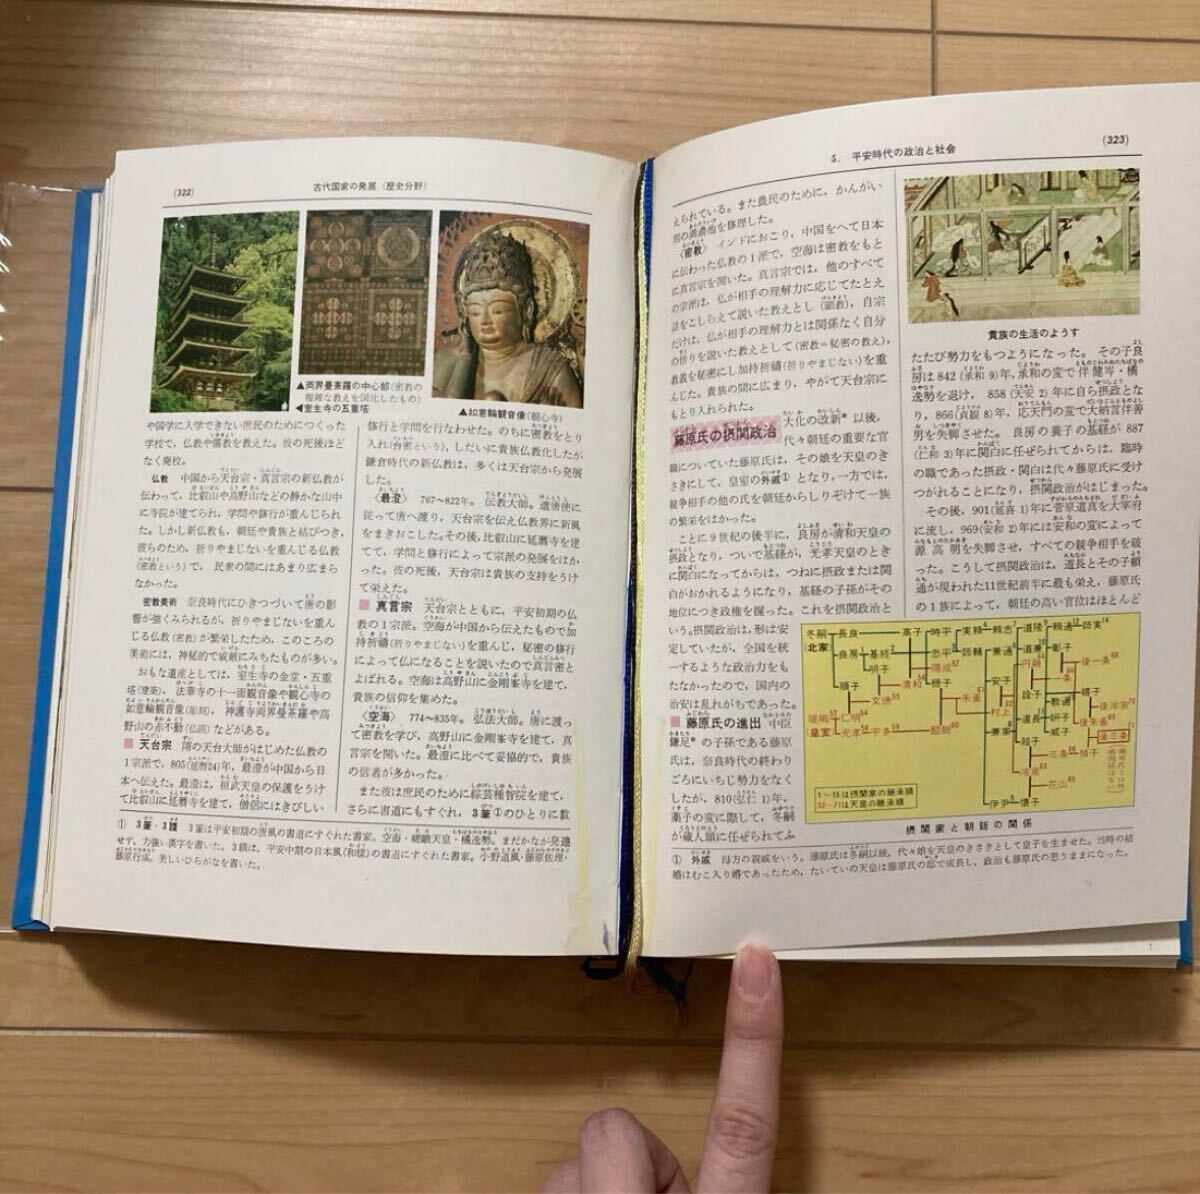 (322)
古代国家の発展(歴史分野)
▲両界曼荼羅の中心部(密教の
複雑な教えを図化したもの)
◀室生寺の五重塔
▲如意輪観音像(観心寺)
や国学に入学できない庶民のためにつくった
学校で,仏教や儒教を教えた。彼の死後ほど
なく廃校。
仏教 中国から天台宗・真言宗の新仏教が
伝わって,比叡山や高野山などの静かな山中
に寺院が建てられ,学問や修行が重んじられ
た。しかし新仏教も,朝廷や貴族と結びつき,
彼らのため,祈りやまじないを重んじる仏教
(密教という)で,民衆の間にはあまり広まら
なかった。
密教美術 奈良時代にひきつづいて唐の影
響が強くみられるが,祈りやまじないを重ん
じる仏教(密教)が繁栄したため,このころの
美術には,神秘的で威厳にみちたものが多い。
おもな遺産としては,室生寺の金堂・五重
塔(建築),法華寺の十一面観音像や観心寺の
如意輪観音像(彫刻),神護寺両界曼荼羅や高
野山の赤不動(仏画)などがある。
天台宗 隋の天台大師がはじめた仏教の
1宗派で,805(延暦24)年,最澄が中国から日
本へ伝えた。最澄は,桓武天皇の保護をうけ
て比叡山に延暦寺を建て,僧侶にはきびしい
修行と学問を行なわせた。のちに密教をとり
入れ(台密という),しだいに貴族仏教化したが
鎌倉時代の新仏教は,多くは天台宗から発展
した。
〈最澄〉 767〜822年。伝教大師。遣唐使に
従って唐へ渡り,天台宗を伝え仏教界に新風
をまきおこした。その後,比叡山に延暦寺を建
てて,学問と修行によって宗派の発展をはか
った。彼の死後,天台宗は貴族の支持をうけ
て栄えた。
真言宗 天台宗とともに,平安初期の仏
教の1宗派。空海が中国から伝えたもので加
持祈禱(祈りやまじない)を重んじ,秘密の修行
によって仏になることを説いたので真言密と
よばれる。空海は高野山に金剛峯寺を建て,
貴族の信仰を集めた。
〈空海〉 774〜835年。弘法大師。唐に渡っ
て密教を学び,高野山に金剛峯寺を建て,真
言宗を開いた。最澄に比べて妥協的で,貴族
の信者が多かった。
また彼は庶民のために綜芸種智院を建て,
さらに書道にもすぐれ,3筆①のひとりに数
① 3筆・3蹟 3筆は平安初期の唐風の書道にすぐれた書家。空海・嵯峨天皇・橘逸勢。まだかなが発達
せず,力強い漢字を書いた。3蹟は,平安中期の日本風(和様)の書道にすぐれた書家。小野道風・藤原佐理・
藤原行成。美しいひらがなを書いた。
5. 平安時代の政治と社会
(323)
えられている。また農民のために,かんがい
用の満濃池を修理した。
〈密教〉 インドにおこり,中国をへて日本
に伝わった仏教の1派で,空海は密教をもと
に真言宗を開いた。真言宗では,他のすべて
の宗派は,仏が相手の理解力に応じてたとえ
話をこしらえて説いた教えとし(顕教),自宗
だけは,仏が相手の理解力とは関係なく自分
の祈りを説いた教えとして(密教=秘密の教え),
教義を秘密にし加持祈禱(祈りやまじない)を重
んじた。貴族の間に広まり,やがて天台宗に
もとり入れられた。
藤原氏の摂関政治
大化の改新*以後,
代々朝廷の重要な官
職についていた藤原氏は,その娘を天皇のき
さきにして,皇室の外戚①となり,一方では,
競争相手の他の氏を朝廷からしりぞけて一族
の繁栄をはかった。
ことに9世紀の後半に,良房が清和天皇の
摂政となり,ついで基経が,光孝天皇のとき
に関白になってからは,つねに摂政または関
白がおかれるようになり,基経の子孫がその
地位につき政権を握った。これを摂関政治と
いう。摂関政治は,形は安
定していたが,全国を統
一するような政治力をも
たなかったので,国内の
治安は乱れがちであった。
藤原氏の進出 中臣
鎌足*の子孫である藤原
氏は,奈良時代の終わり
ごろにいちじ勢力をなく
したが,810(弘仁1)年,
薬子の変に際して,冬嗣
が蔵人頭に任ぜられてふ
貴族の生活のようす
たたび勢力をもつようになった。その子良
房は842(承和9)年,承和の変で伴健岑・橘
逸勢を退け,858(天安2)年に自ら摂政とな
り,866(貞観8)年,応天門の変で大納言伴善
男を失脚させた。良房の養子の基経が887
(仁和3)年に関白に任ぜられてからは,臨時
の職であった摂政・関白は代々藤原氏に受け
つがれることになり,摂関政治がはじまった。
その後,901(延喜1)年に菅原道真を大宰府
に流し,969(安和2)年には安和の変によって
源高明を失脚させ,すべての競争相手を破
った。こうして摂関政治は,道長とその子頼
通が現われた11世紀前半に最も栄え,藤原氏
の1族によって,朝廷の高い官位はほとんど
冬嗣 長良 高子 時平 実頼 頼忠 道隆 頼通 師実
(北家) 良房 基経 忠平 師輔 兼通 道兼 彰子
明子 陽成 円融 一条 後一条
順子 清和 穏子 朱雀 安子 詮子 教通 嬉子
文徳 村上 道長 研子 後朱雀 後冷泉
嵯峨 仁明 兼家 威子
(皇室) 光孝 宇多 醍醐 超子 三条 禎子 後三条
冷泉
花山
伊尹 懐子
1〜15は摂関家の継承順
52〜71は天皇の継承順
摂関家と朝廷の関係
① 外戚 母方の親戚をいう。藤原氏は冬嗣以後,代々娘を天皇のきさきとして皇子を生ませた。当時の結
婚はむこ入り婚であったため,たいていの天皇は藤原氏の邸で成長し,政治も藤原氏の思うままになった。